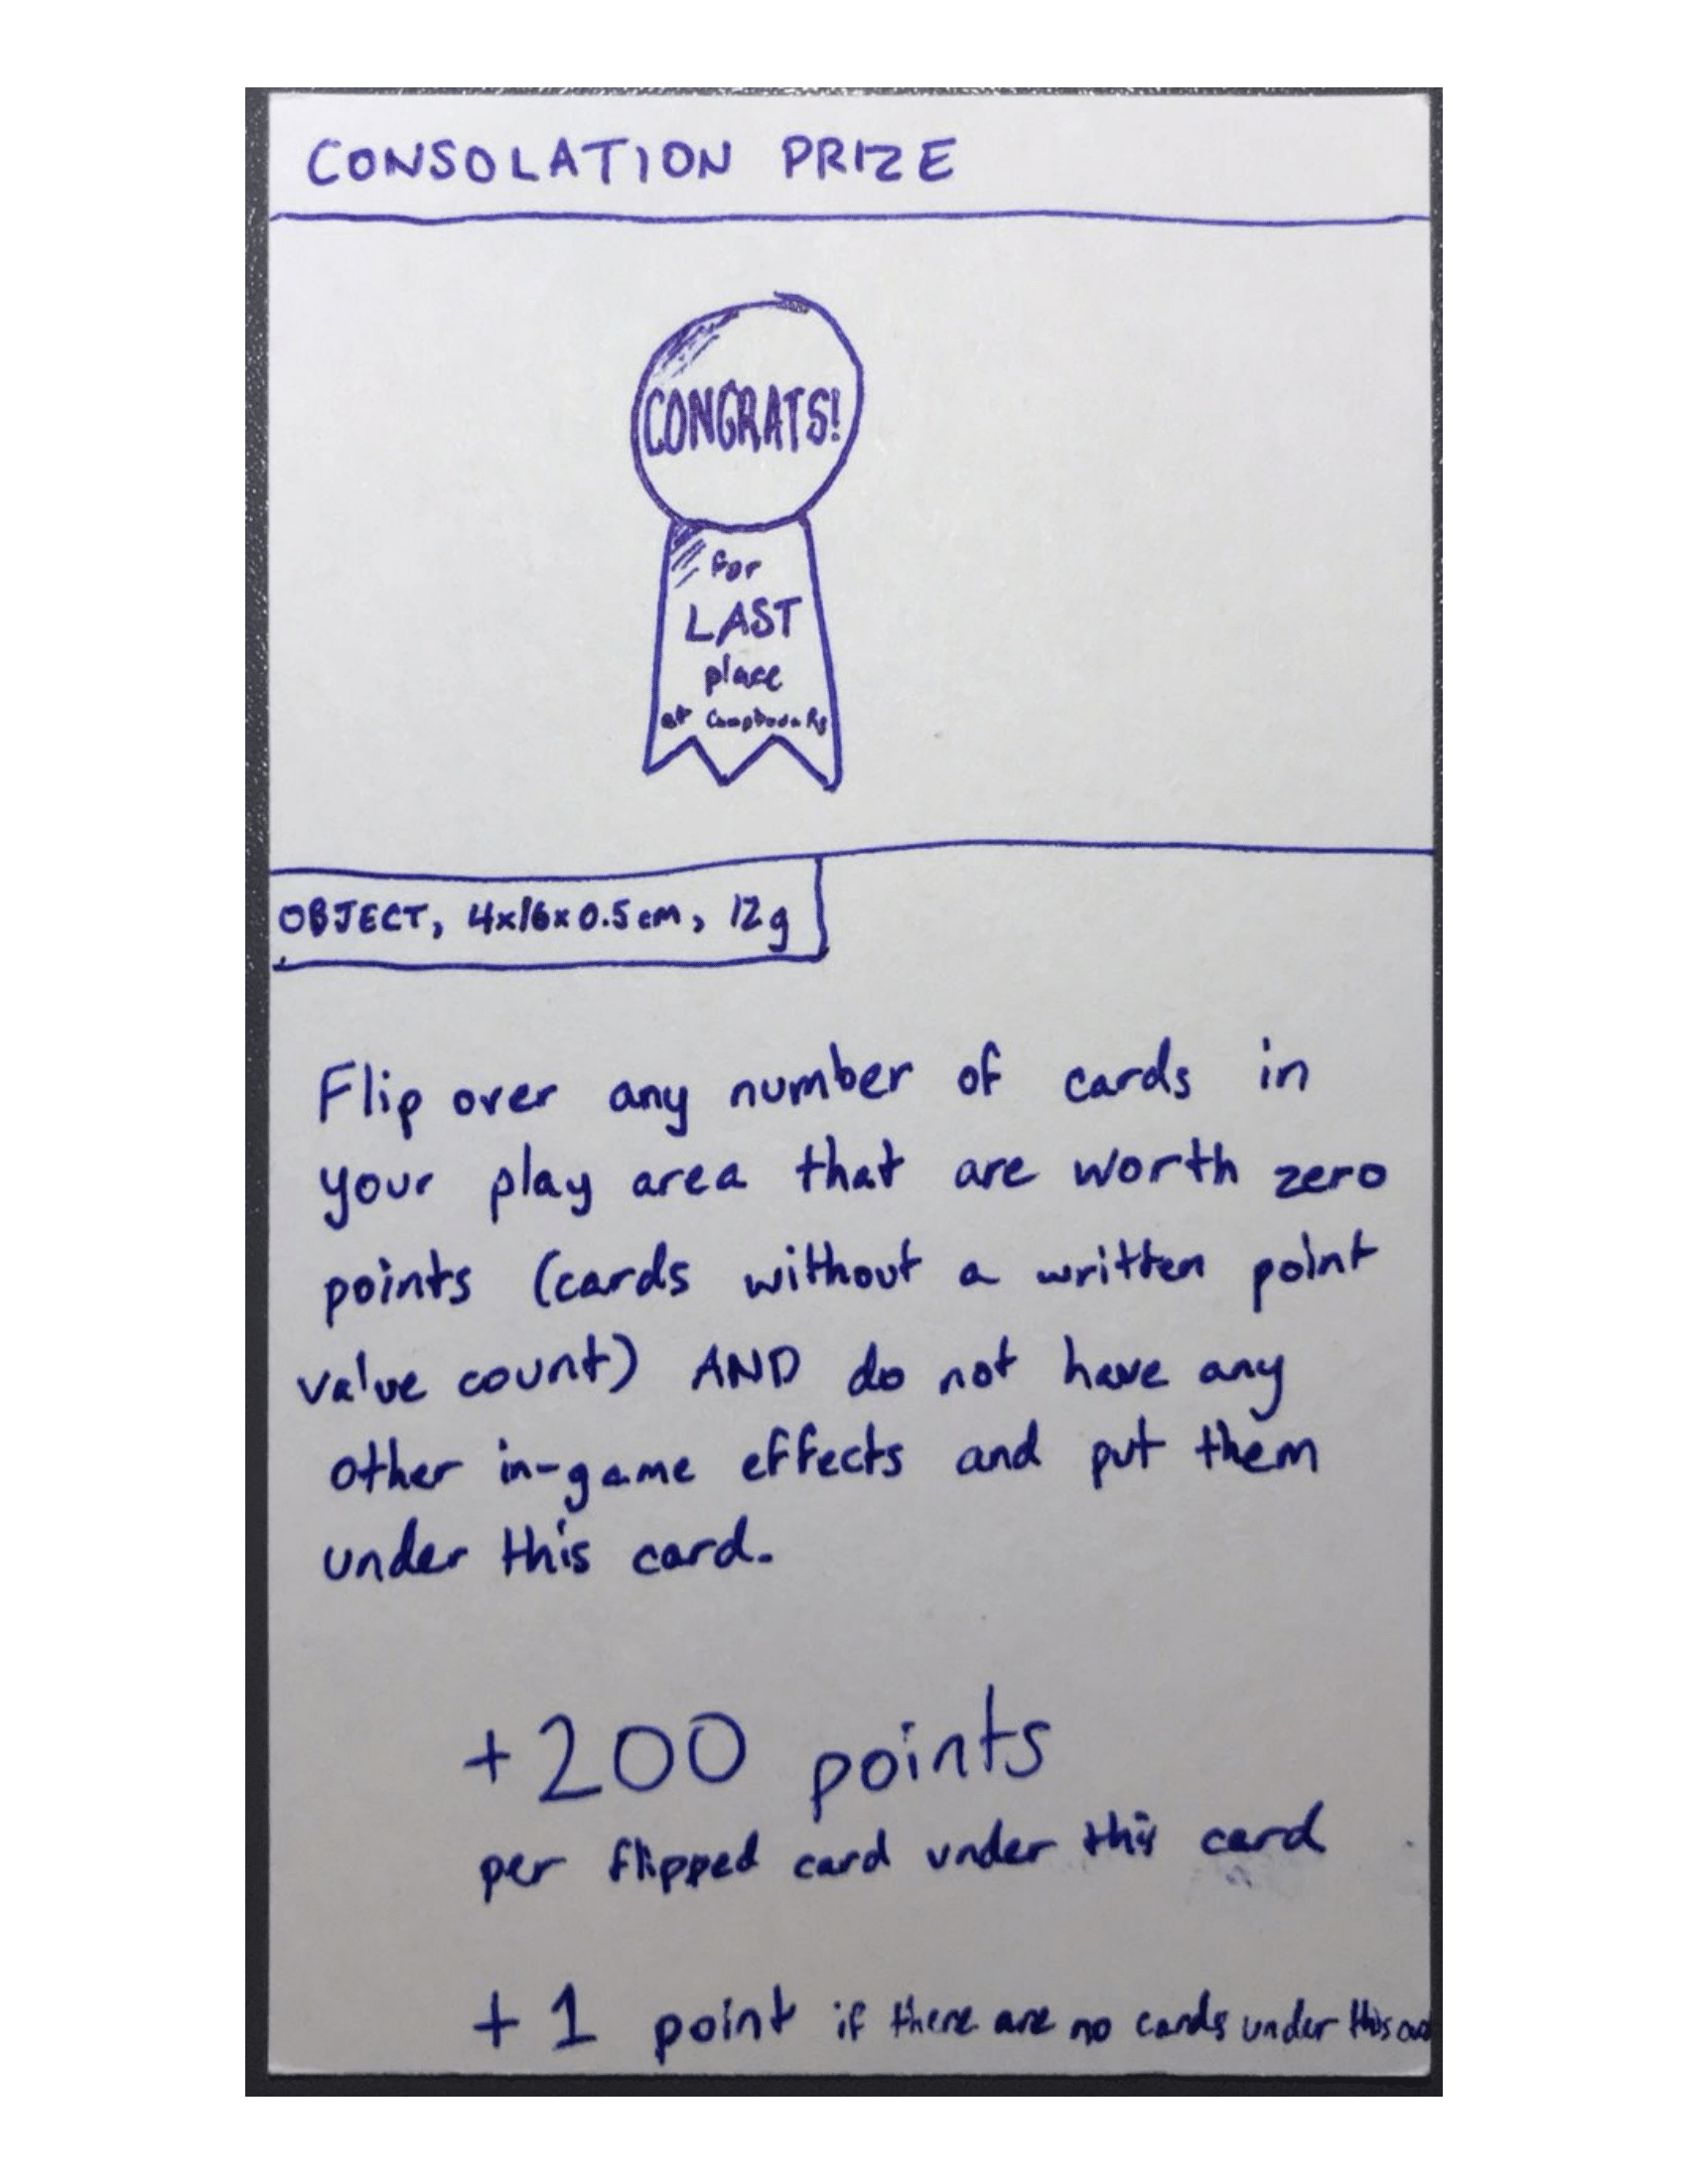 CONSOLATION PRIZE
CONGRATS!
for
LAST
place
at
OBJECT, 4x16x0.5cm, 12g
Flip over any number of cards in
your play area that are worth zero
points (cards without a written point
value count) AND do not have any
other in-game effects and put them
under this card.
+200 points
per flipped card under this card
+1 point if there are no cards under this